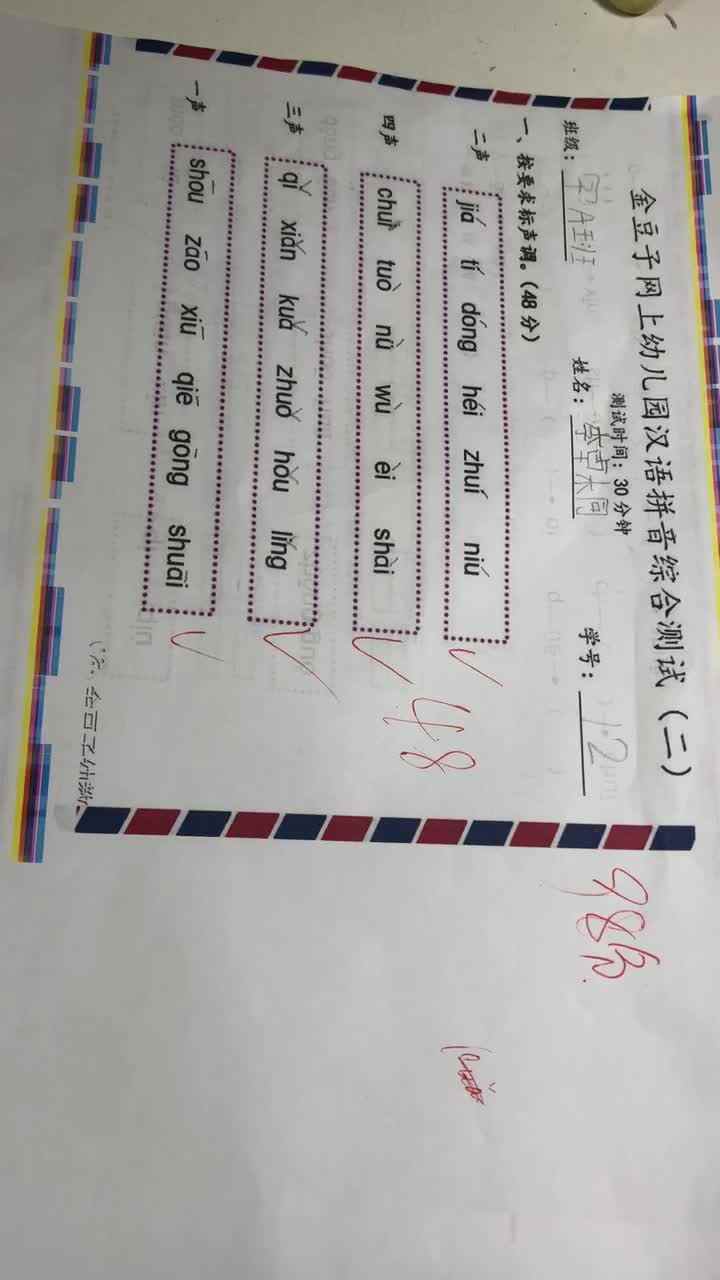 金豆子网上幼儿园汉语拼音综合测试（二）
测试时间：30分钟
班级： 姓名： 学号：12
一、按要求标声调。（48分）
二声 jiá tí dóng héi zhuí niú
四声 chuì tuò nǜ wù èi shài
三声 qǐ xiǎn kuǎ zhuǒ hǒu lǐng
一声 shōu zāo xiū qiē gōng shuāi
48
98